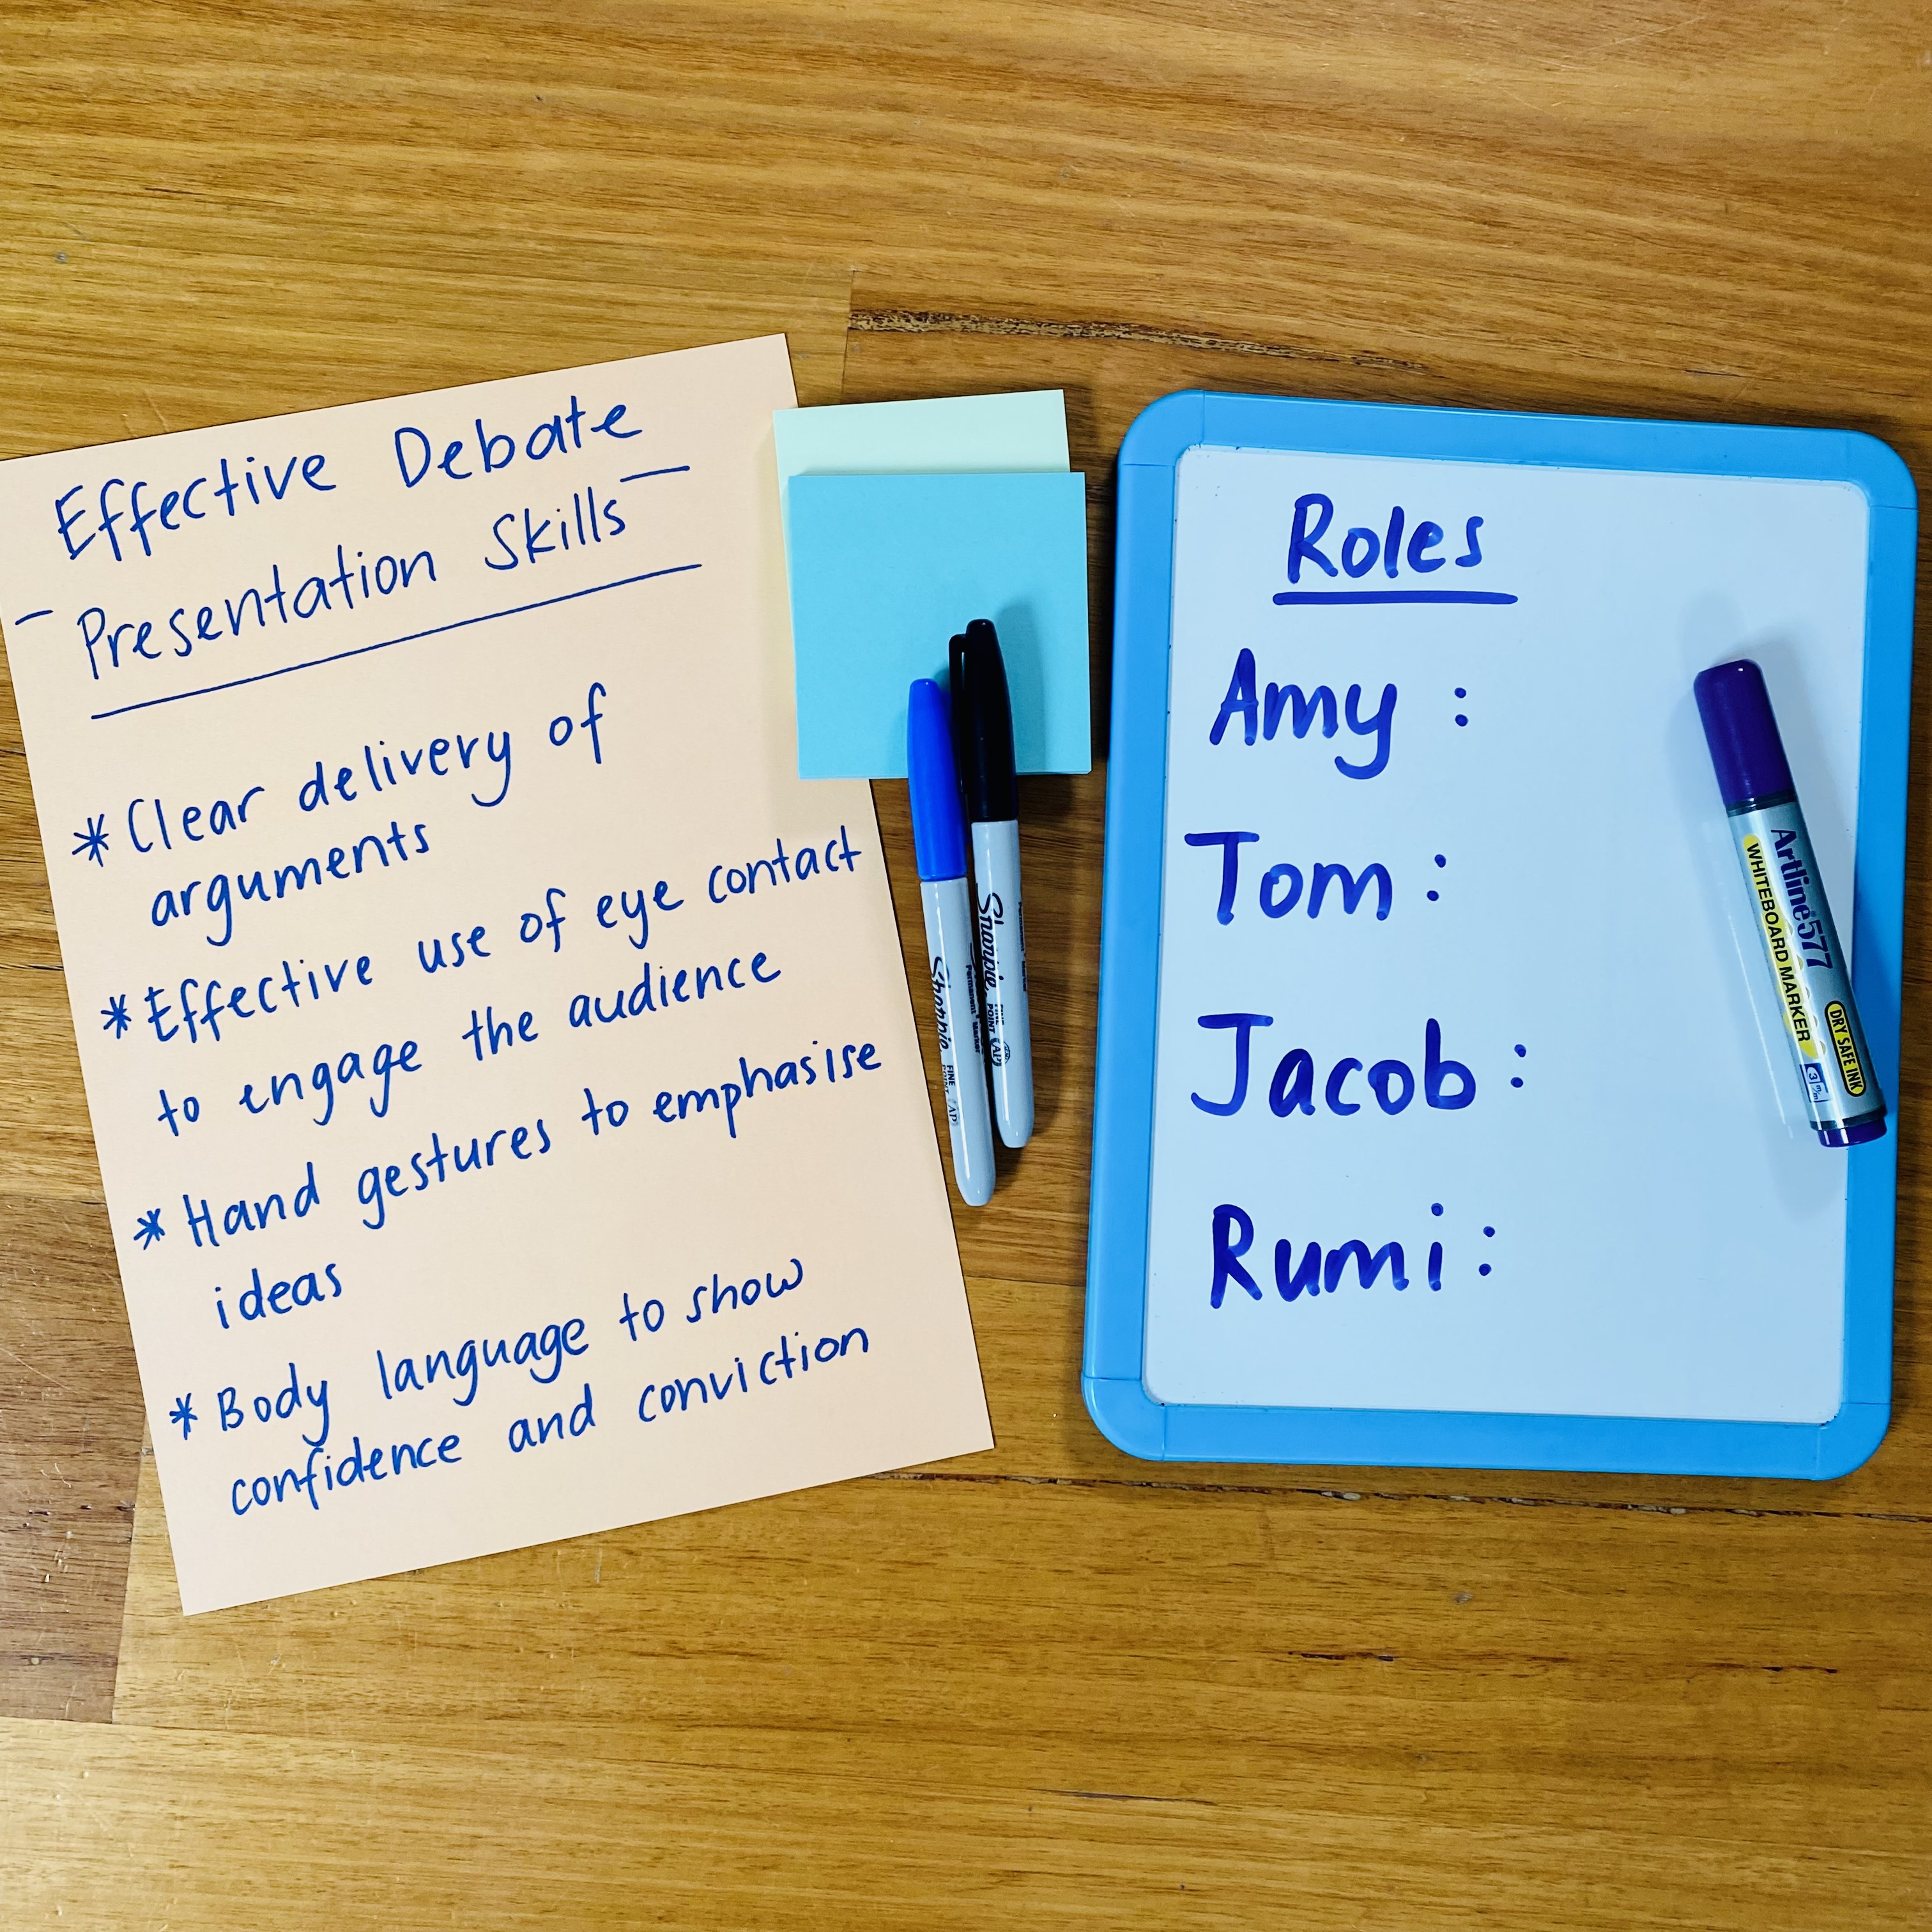 Effective Debate
Presentation Skills
* Clear delivery of
arguments
* Effective use of eye contact
to engage the audience
* Hand gestures to emphasise
ideas
* Body language to show
confidence and conviction
Sharpie
FINE
Sharpie
Roles
Amy :
Tom :
Jacob :
Rumi :
Artline 577
WHITEBOARD MARKER
DRY SAFE INK